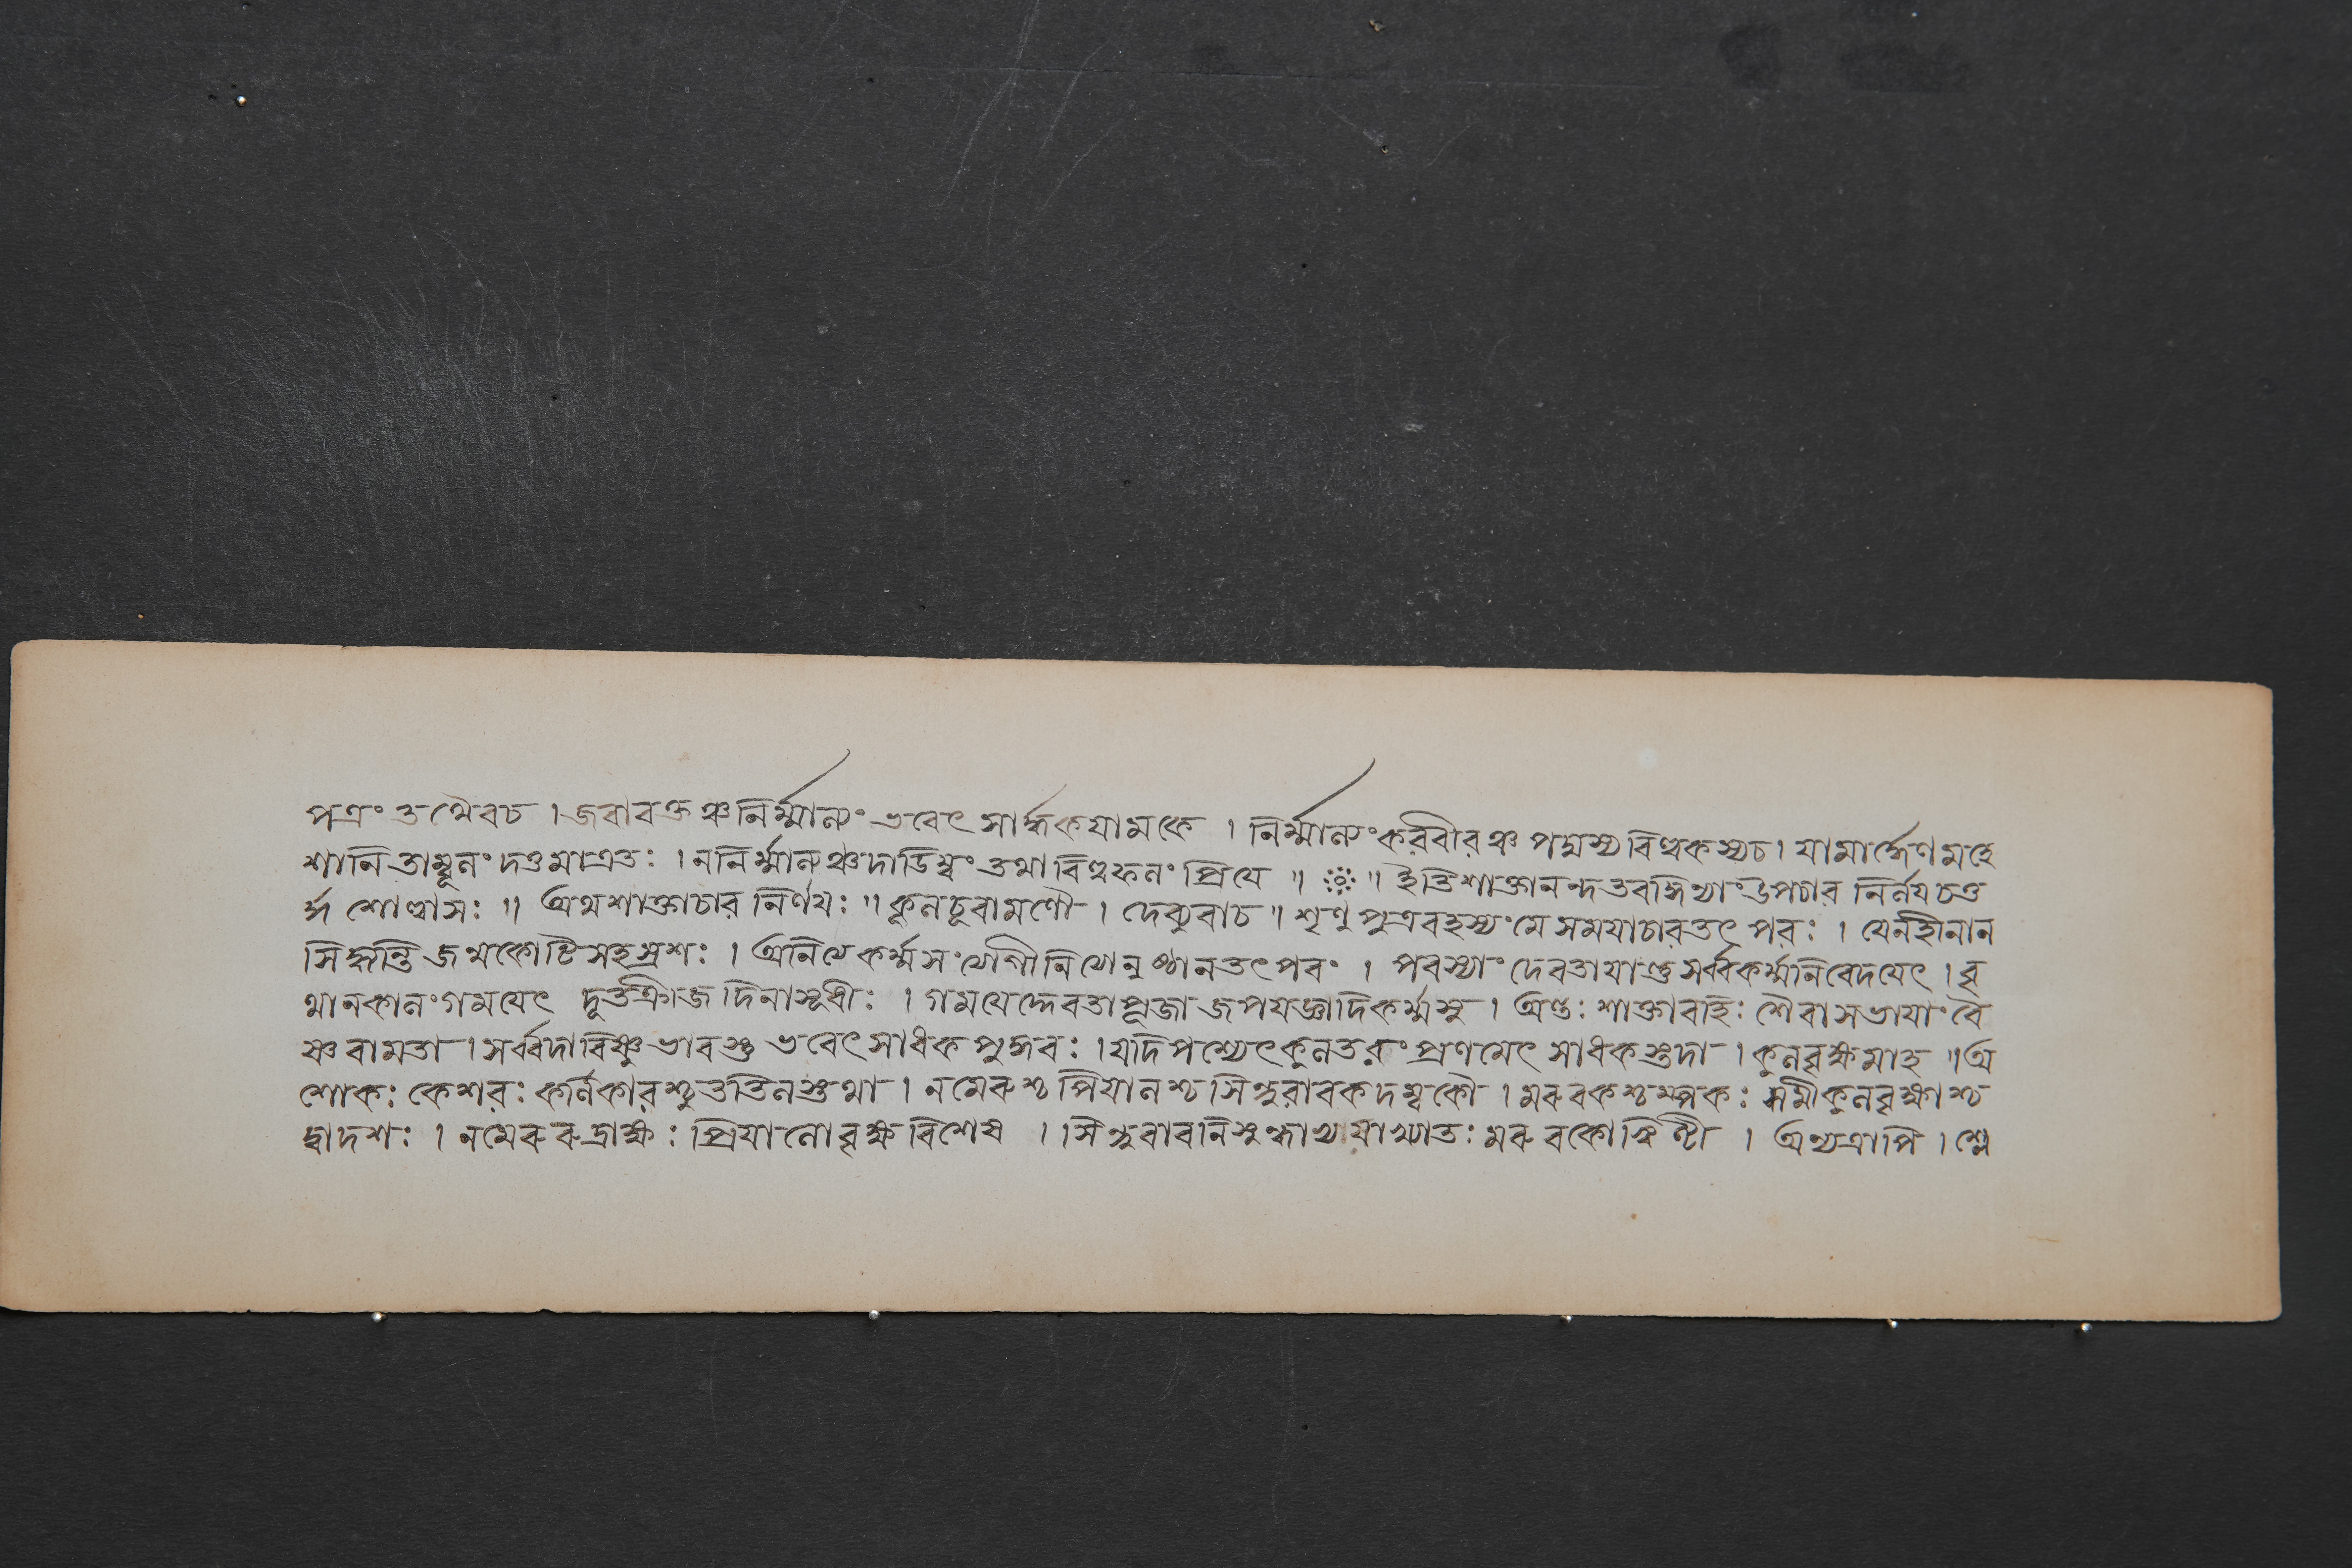 পত্রং তথৈবচ । জবাবক্তঞ্চনির্ম্মাল্যং ভবেৎ সার্দ্ধকযামকে । নির্ম্মাল্যংকরবীরঞ্চ পদ্মস্যবিল্বকস্যচ । যামার্দ্ধেণমহে
শানিতাম্বূলং দত্তমাত্রতঃ । ননির্ম্মাল্যঞ্চদাডিম্বং তথাবিল্বফলং প্রিযে ॥ ॥ ইতিশাক্তানন্দতরঙ্গিণ্যাংউপচার নির্নযচতু
র্দ্দশোল্লাসঃ ॥ অথশাক্তাচার নির্ণযঃ ॥ কূলচূবামণৌ । দেব্যুবাচ ॥ শৃণু পুত্রবহস্যংমে সমযাচারতৎ পরঃ । যেনহীনান
সিদ্ধ্যন্তি জন্মকোটিসহস্রশঃ । অনিত্যেকর্ম্মসংযোগীনিত্যেনুষ্ঠানতৎ পবং । পবস্যাং দেবতাযান্তুসর্ব্বকর্ম্মনিবেদযেৎ । বৃ
থানকালংগমযেৎ দূতক্রীডাদিনাসূধীঃ । গমযেদ্দেবতাপূজা জপযজ্ঞাদিকর্ম্মসু । অন্তঃ শাক্তাবহিঃ শৈবাসভাযাংবৈ
ষ্ণবামতা । সর্ব্বদাবিষ্ণুভাবস্তু ভবেৎসাধক পুঙ্গবঃ । যদিপশ্যেৎকুলতরুং প্রণমেৎ সাধকস্তদা । কুলবৃক্ষমাহ ॥ অ
শোকঃ কেশরঃ কর্নিকারশ্চুততিলস্তথা । নমেরুশ্চ পিযালশ্চ সিন্ধুবাবকদম্বকৌ । মরুবকশ্চম্পকঃ সমীকুলবৃক্ষাশ্চ
দ্বাদশঃ । নমেরুরুদ্রাক্ষঃ প্রিযালোবৃক্ষ বিশেষ । । সিন্ধুবাবনিসুন্ধাখ্যযাখ্যাতঃ মরুবকোঝিণ্টী । অন্যত্রাপি । শ্লে